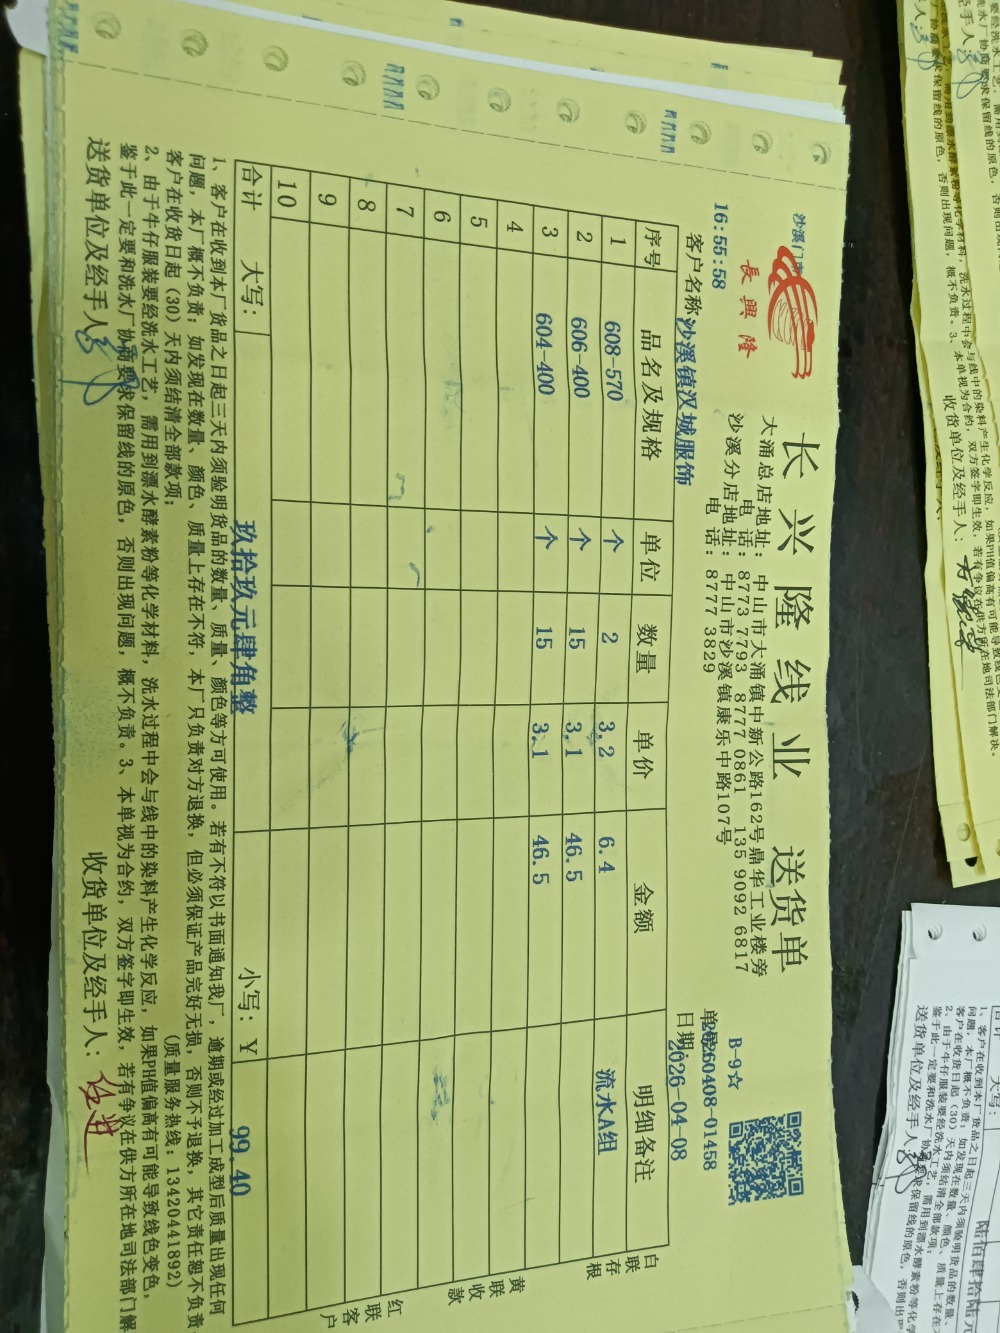 沙溪门市
長興隆
16:55:58
长兴隆线业 送货单
大涌总店地址：中山市大涌镇中新公路162号鼎华工业楼旁
电 话：8773 7793 8777 0861 135 9092 6817
沙溪分店地址：中山市沙溪镇康乐中路107号
电 话：8777 3829
B-9☆
单号：20260408-01458
日期：2026-04-08
客户名称：沙溪镇汉城服饰
序号 品名及规格 单位 数量 单价 金额 明细备注
1 608-570 个 2 3.2 6.4 流水A组
2 606-400 个 15 3.1 46.5
3 604-400 个 15 3.1 46.5
4
5
6
7
8
9
10
合计 大写： 玖拾玖元肆角整 小写：￥ 99.40
白联存根
黄联收款
红联客户
1、客户在收到本厂货品之日起三天内须验明货品的数量、质量、颜色等方可使用。若有不符以书面通知我厂，逾期或经过加工成型后质量出现任何
问题，本厂概不负责；如发现在数量、颜色、质量上存在不符，本厂只负责对方退换，但必须保证产品完好无损，否则不予退换，其它责任恕不负责。
客户在收货日起（30）天内须结清全部款项；
（质量服务热线：13420441892）
2、由于牛仔服装要经洗水工艺，需用到漂水酵素粉等化学材料，洗水过程中会与线中的染料产生化学反应，如果PH值偏高有可能导致线色变色，
鉴于此一定要和洗水厂协商要求保留线的原色，否则出现问题，概不负责。3、本单视为合约，双方签字即生效，若有争议在供方所在地司法部门解
送货单位及经手人：
收货单位及经手人：
收货单位及经手人：
送货单位及经手人